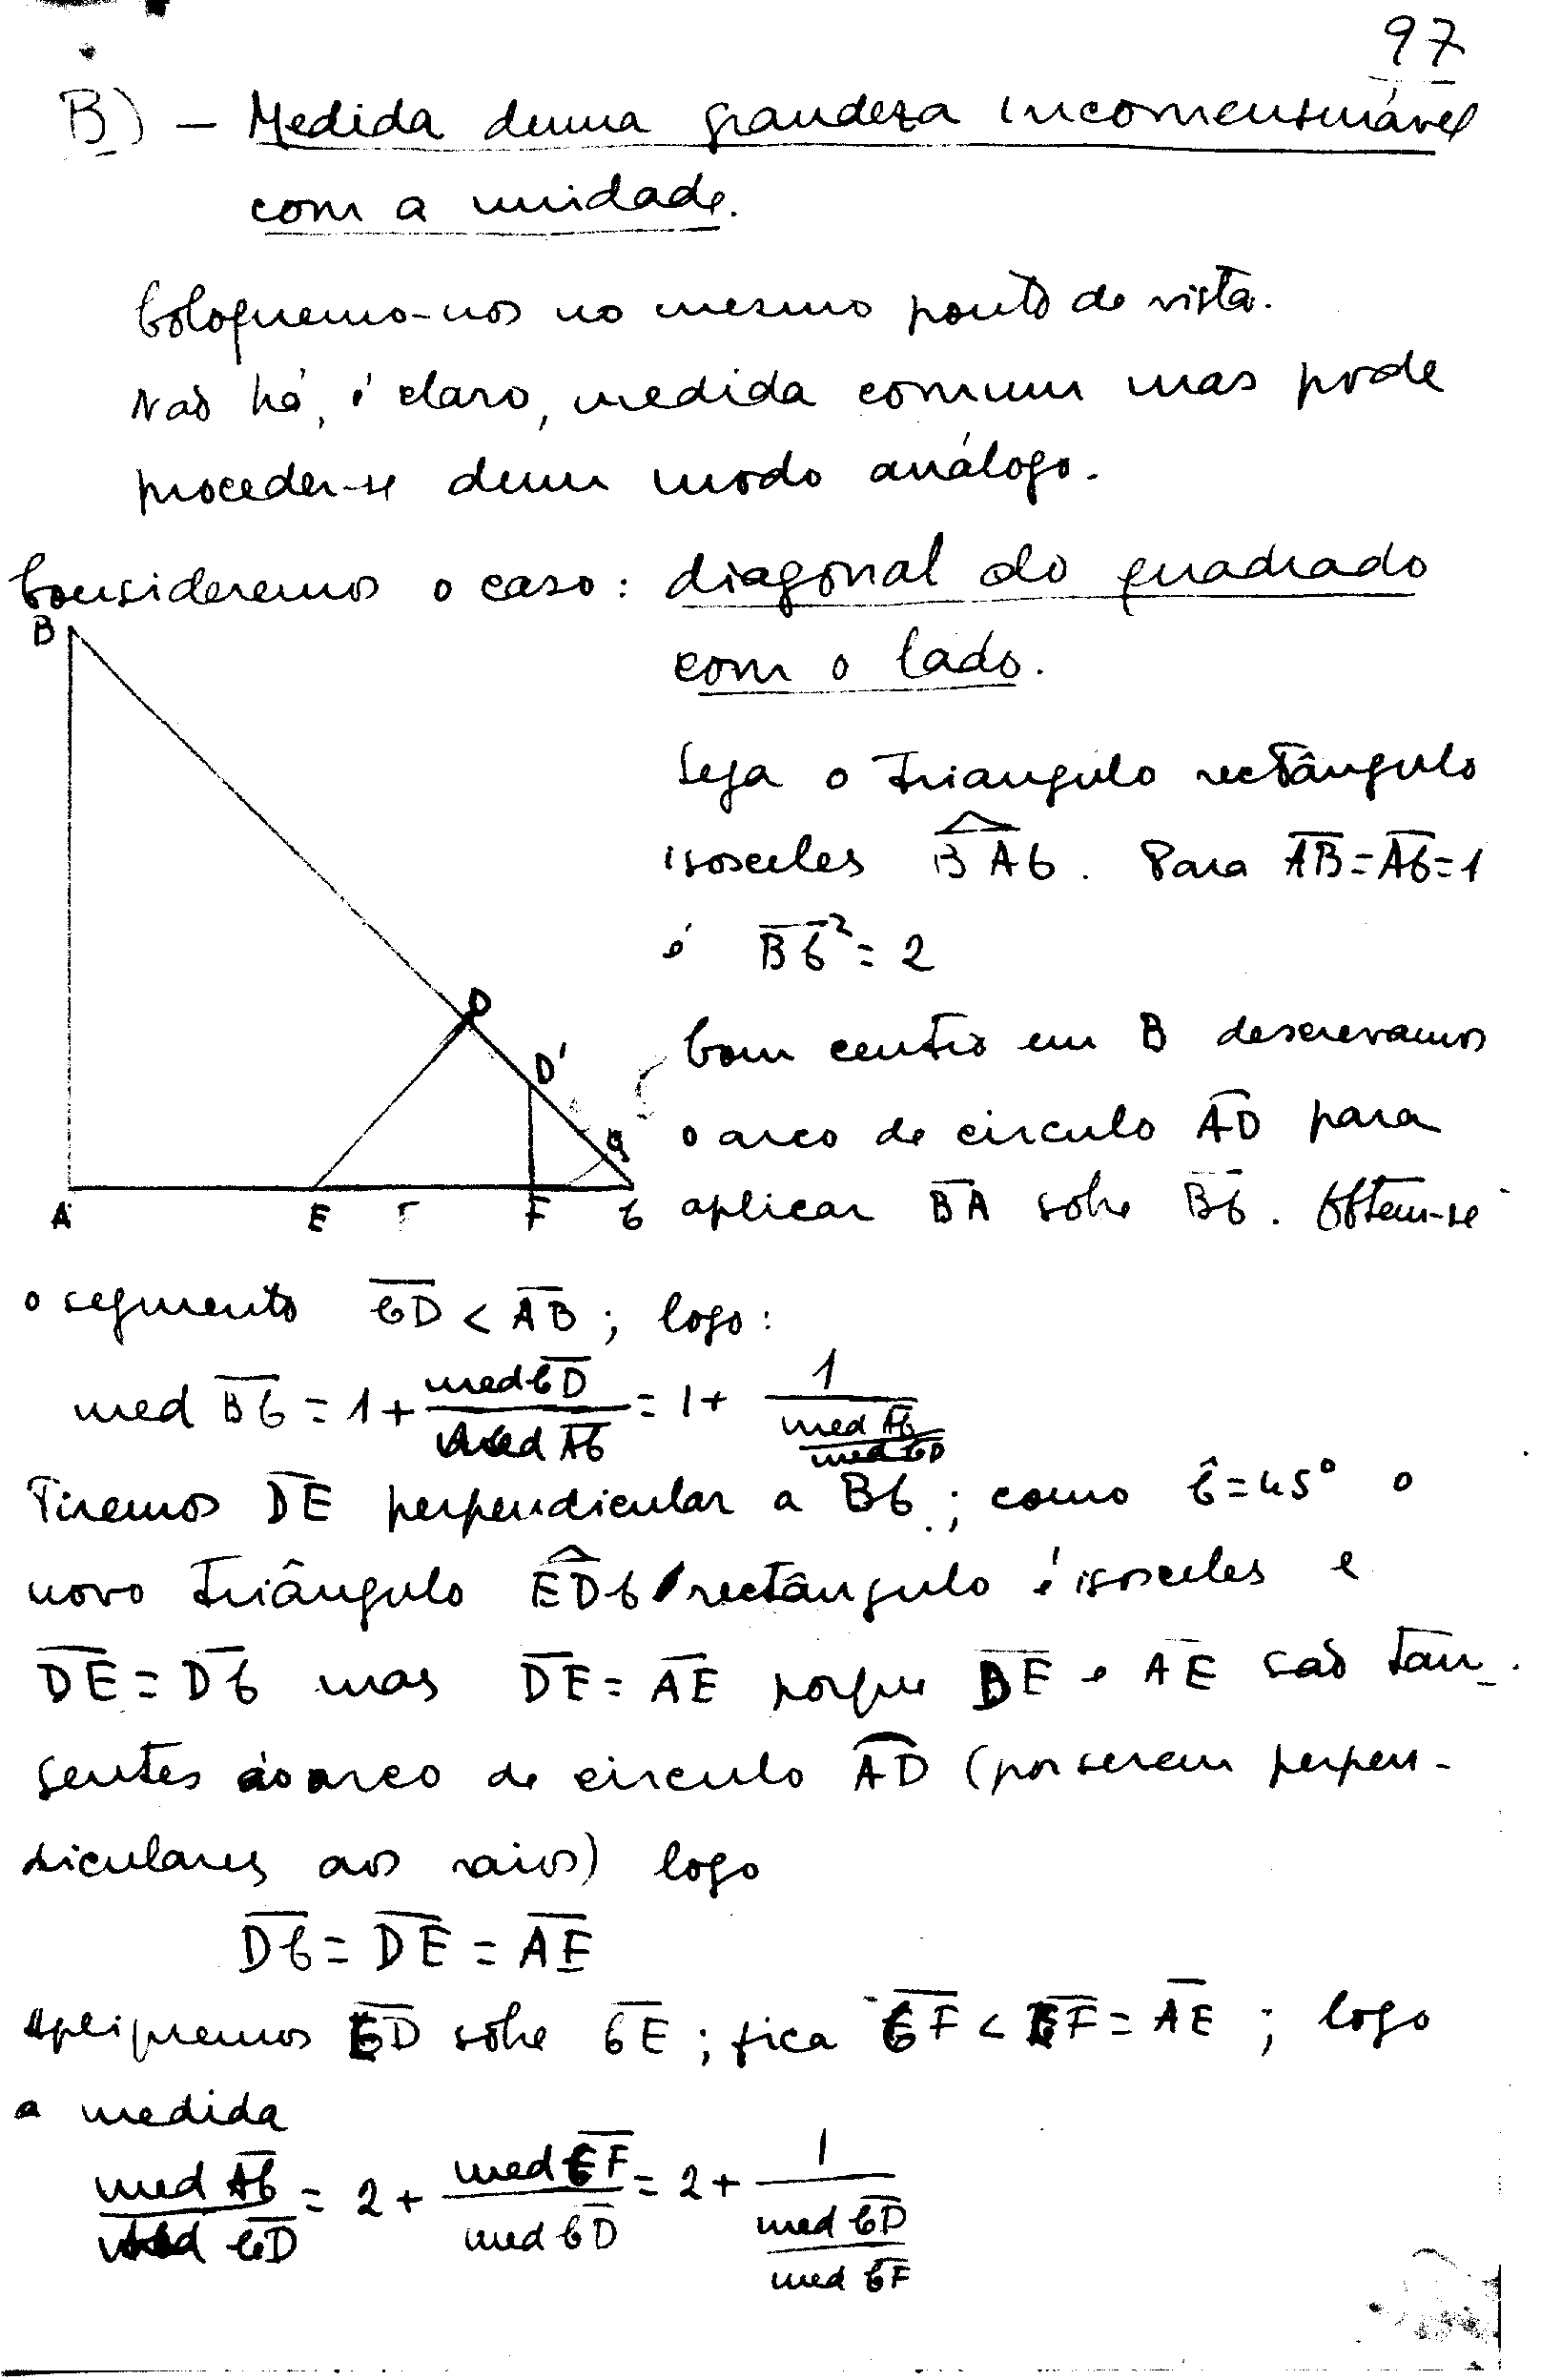 97
B) – Medida duma grandeza incomensurável
com a unidade.
Coloquemo-nos no mesmo ponto de vista.
Não há, é claro, medida comum mas pode
proceder-se dum modo análogo.
Consideremos o caso: diagonal do quadrado
com o lado.
B
Seja o triangulo rectângulo
isosceles BAC. Para AB = AC = 1
é BC² = 2
D
D'
G
A E F F C
Com centro em B descrevamos
o arco de circulo AD para
aplicar BA sobre BC. Obtem-se
o segmento CD < AB ; logo :
med BC = 1 + med CD / med AC = 1 + 1 / (med AC / med CD)
Tiremos DE perpendicular a BC ; como Ĉ = 45° o
novo triângulo EDC rectângulo é isosceles e
DE = DC mas DE = AE porque DE e AE são tan-
gentes ao arco de circulo AD (por serem perpen-
diculares aos raios) logo
DC = DE = AE
Apliquemos CD sobre CE ; fica CF < EF = AE ; logo
a medida
med AC / med CD = 2 + med CF / med CD = 2 + 1 / (med CD / med CF)